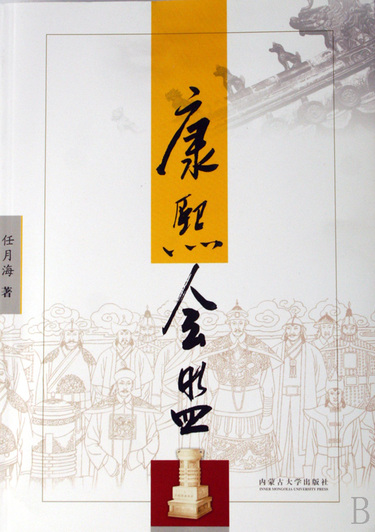 康熙会盟
任月海 著
内蒙古大学出版社
INNER MONGOLIA UNIVERSITY PRESS
B